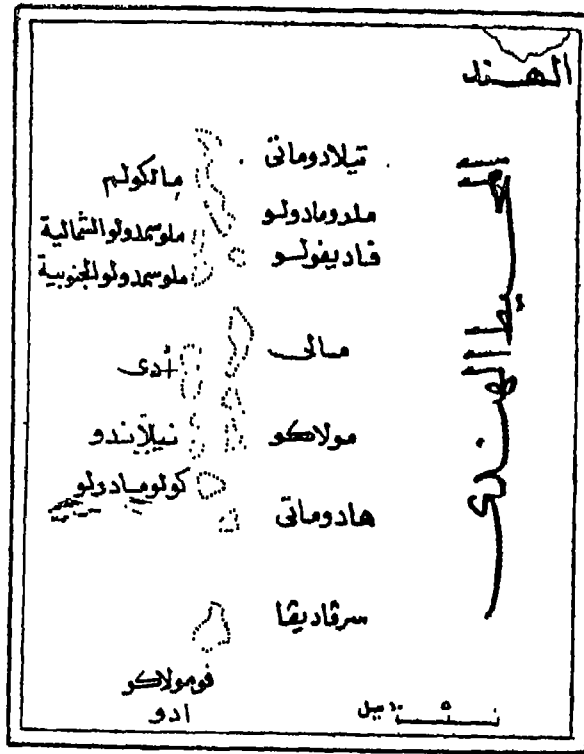 الهند
المحيط الهندي
تيلادوماتى
مالكولم
ملدومادولو
ملوسمدولو الشمالية
فاديفولو
ملوسمدولو الجنوبية
مالى
أدى
مولاكو
نيلاندو
كولومادولو
هادوماتى
سرڤاديڤا
فومولاكو
ادو
ميل